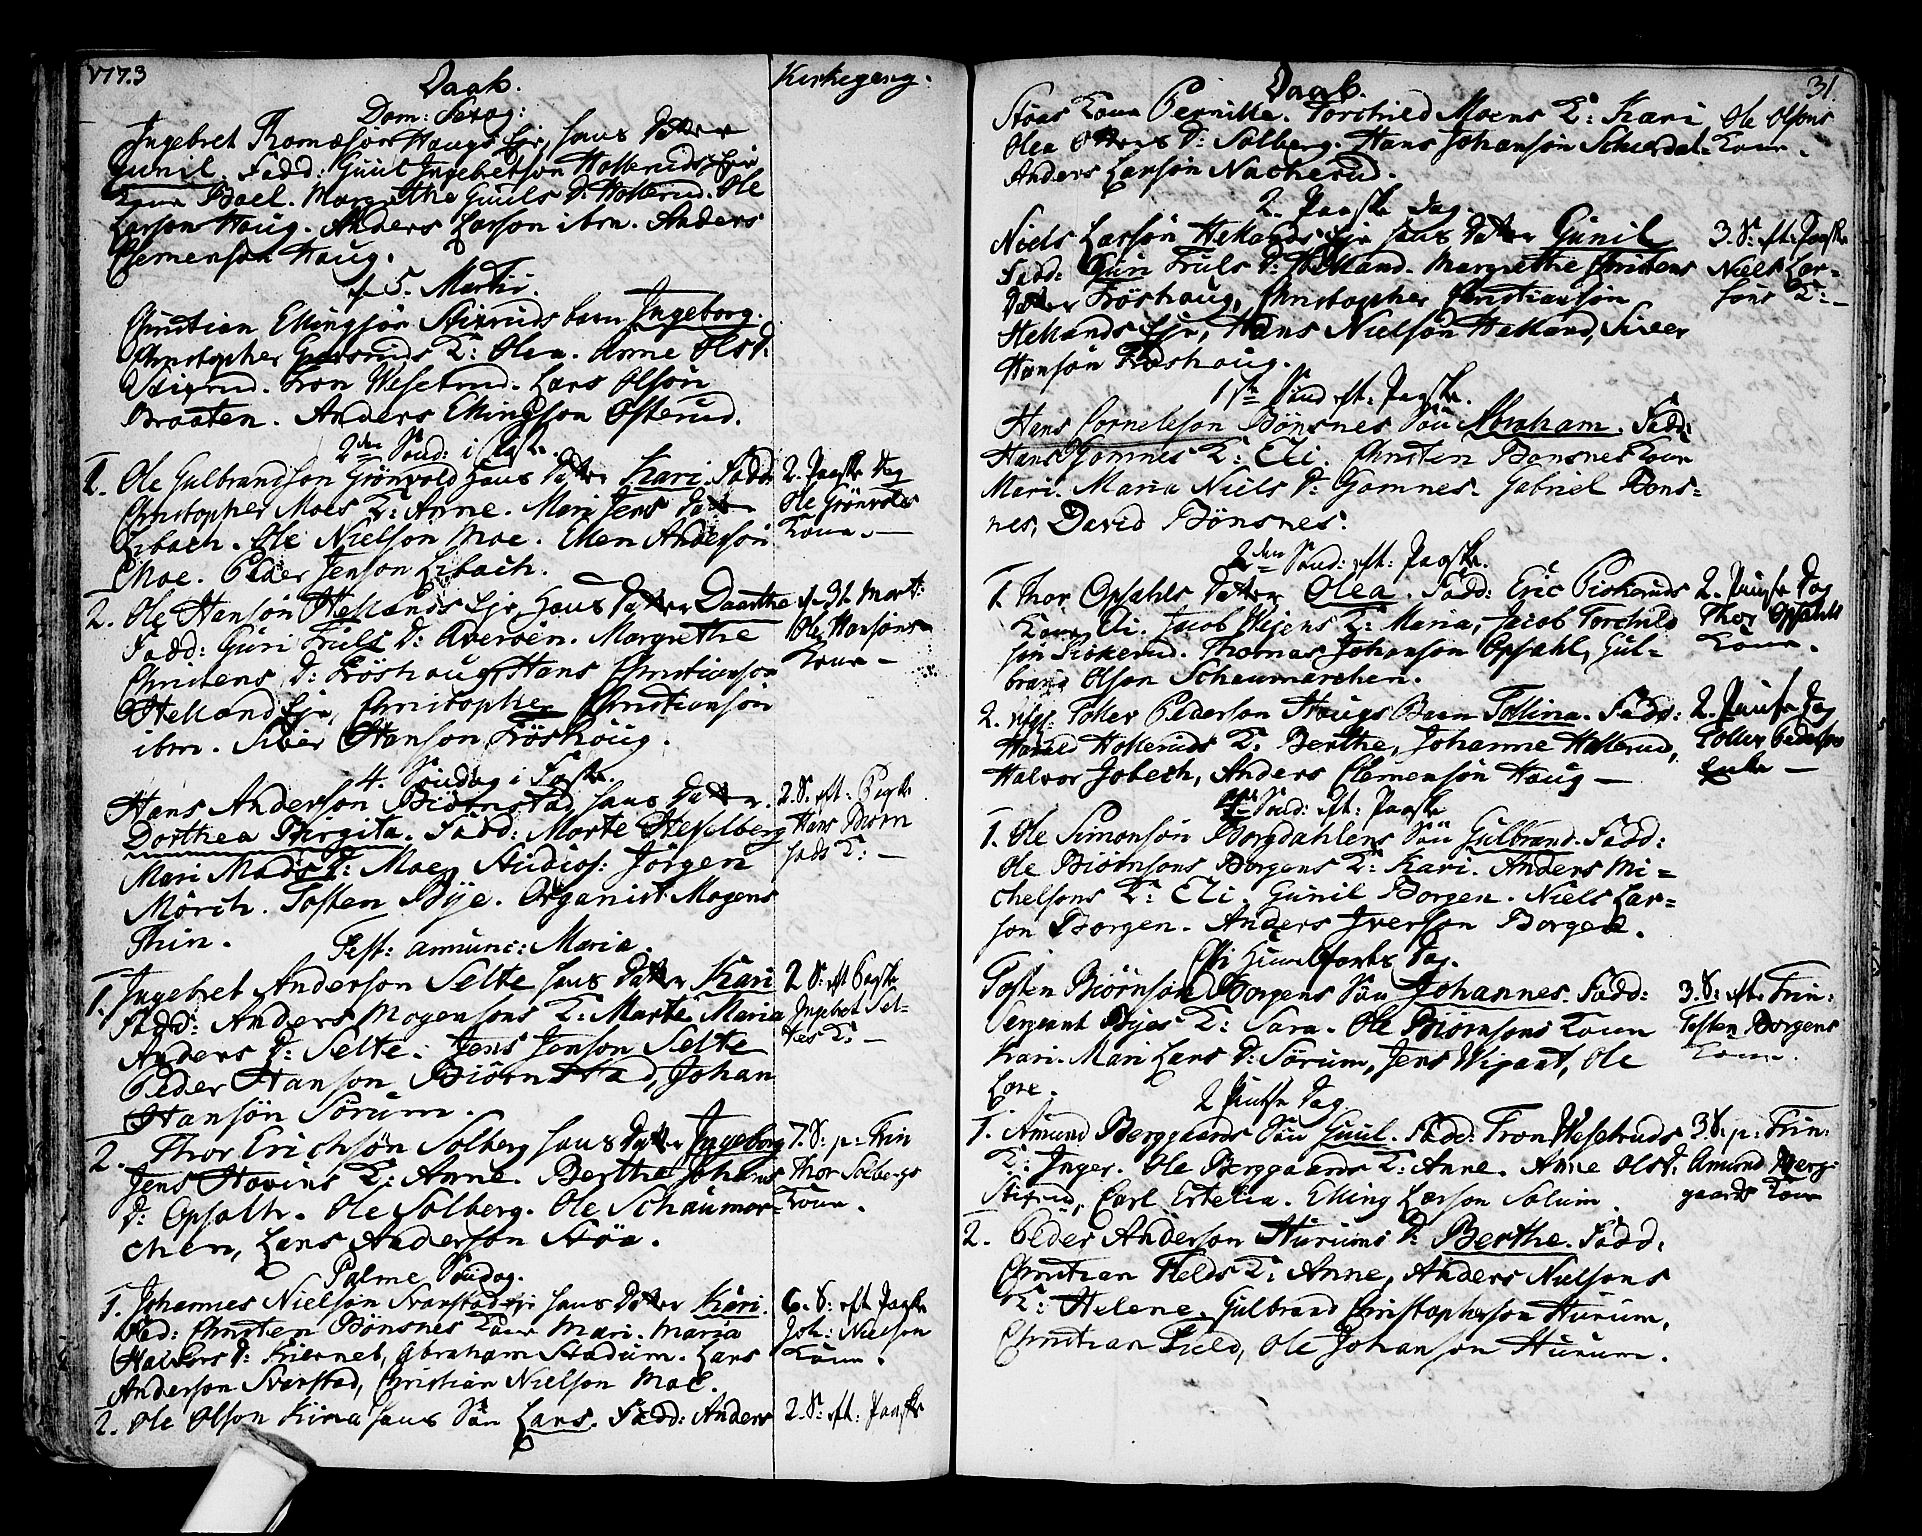 1773
Daab.
Kirkegang.
Dom: Sexag:
Ingebret Thomæsøn Haugs Eje hans Datter
Gunil. Fadd: Guul Ingebretson Hollerudseje
Kone Boel. Margrethe Guuls D: Hollerud. Ole
Larson Haug. Anders Larson ibm. Anders
Clemenson Haug.
d. 5. Martii.
Christian Ellingsøn Stixruds barn Ingeborg.
Christopher K: Olea. Anne Ols D:
Stixrud. Tron Wesetrud. Lars Olsøn
Braaten. Anders Ellingson Osterud.
2den Sønd: i Fast.
1. Ole Gulbrandson Grønvold hans Datter Kari. Fadd:
Christopher Moes K: Anne. Mari Jens Datter
Lisbach. Ole Nielson Moe. Ellen Anderson
Moe. Peder Jenson Lisbach.
2. Paaske Dag
Ole Grønvolds
Kone.
2. Ole Hansøn Hellands Eje Hans Datter Daarthe
Fadd: Guri Truls D: Averøen. Margrethe
Christens D: Frøshaug, Hans Christianson
Helland Eje, Christopher Christiansøn
ibm. Siver Hanson Frøshoug.
Ole Hansøns
Kone
4. Søndag i Faste.
Hans Anderson Biørnstad, hans Datter.
Dorthea Birgita. Fadd: Marte Hesselberg
Mari Mads D: Moe, Studios: Jørgen
Mørch. Tosten Bye. Organist Mogens
Thin.
2. S. eft: Paaske
Hans Biørn
stads K:
Fest: annunc: Maria.
1. Ingebret Anderson Selte hans Datter Kari
Fadd: Anders Mogensons K: Marte. Maria
Anders D: Selte. Jens Jenson Selte
Peder Hanson Biørnstad, Johan
Hansøn Sørum.
2 S: eft Paaske
Ingebret Sel-
tes K:
2. Thor Erichsøn Solberg hans Datter Ingeborg
Jens Hovins K: Anne. Berthe Johans
D: Opsalh. Ole Solberg. Ole Schaumar-
chen, Lars Anderson Støa.
7. S: p: Trin
Thor Solbergs
Kone.
Palme Søndag.
1. Johannes Nielson Svarstad eje hans Datter Kari.
Fad: Christen Bønsnes Kone Mari. Maria
Halvors D: Fiernet, Abraham Stadum. Lars
Anderson Svarstad, Christian Nielson Moe.
6. S: eft Paaske
Joh: Nielson
Kone.
2. Ole Olson hans Søn Lars. Fadd: Anders
2. S: eft: Paaske
31.
Daab.
Støas Kone Pernille. Torchild Moens K: Kari
Olea D: Solberg. Hans Johansøn Schierdal.
Anders Larsøn Nacherud.
Ole Olsons
Kone.
2. Paaske Dag.
Niels Larsøn Hellands Eje hans Datter Gunil
Fadd: Guri Truls D: Helland. Margrethe Christens
Datter Frøshaug, Christopher Christiansøn
Hellands Eje, Hans Nielsøn Helland, Siver
Hansøn Frøshoug.
3. S: eft: Paaske
Niels Lar=
sons K:
1ste Sønd eft: Paaske.
Hans Cornelsson Bønsnes Søn Abraham. Fadd:
Hans Gomnes K: Eli. Christen Bønsnes Kone
Mari. Maria Niels D: Gomnes. Gabriel Bøns=
nes, David Bønsnes.
2den Sønd: eft: Paaske.
1. Thor Opsahls Datter Olea. Fadd: Eric Piskeruds
Kone Eli. Jacob Wejens K: Maria, Jacob Torchild
søn Piskerud. Thomas Johanson Opsahl, Gul=
brand Olson Schaumarchen.
2. Pintse Dag
Thor Opsahls
Kone.
2. Toller Pederson Haugs Barn Tollina. Fadd:
Harald Holleruds K: Berthe, Johanne Hollerud,
Halvor Jobech, Anders Clemensøn Haug
2. Pintse Dag
Toller Pedersons
Enke
4de Sønd: eft: Paaske
1. Ole Simonsøn Borgdahlens Søn Gulbrand. Fadd:
Ole Biørnsons Borgens K: Kari. Anders Mi=
chelsons K: Eli. Gunil Borgen. Niels Lar=
son Borgen. Anders Iverson Borgen.
Chr: Himmelfarts Dag.
Tosten Biørnsøn Borgens Søn Johannes. Fadd:
Sergeant Byes K: Sara. Ole Biørnsons Kone
Kari. Mari Lars D: Sørum, Jens Wigant, Ole
Lore.
3. S: eft: Trin:
Tosten Borgens
Kone.
2 Pintse Dag
1. Amund Berggaards Søn Guul. Fadd: Tron Wesetruds
K: Inger. Ole Berggaards K: Anne. Anne Ols D:
Stixrud, Carl Ertelia. Elling Larson Solum.
3. S: p: Trin:
Amund Berg=
gaards Kone
2. Peder Anderson Hurums D: Berthe. Fadd:
Christian Fields K: Anne, Anders Nielsons
K: Helene. Gulbrand Christopherson Hurum,
Christian Field, Ole Johanson Hurum.